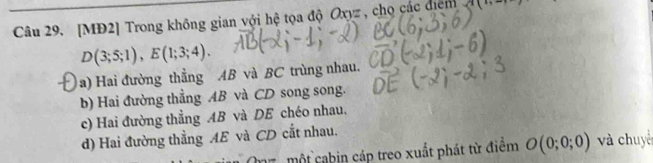 Câu 29. [MĐ2] Trong không gian với hệ tọa độ Oxyz, cho các điểm A(1;
D(3;5;1), E(1;3;4).
AB(-2;-1;-2) BC(6;3;6)
CD(-2;1;-6)
DE(-2;-2;3
a) Hai đường thẳng AB và BC trùng nhau.
b) Hai đường thẳng AB và CD song song.
c) Hai đường thẳng AB và DE chéo nhau.
d) Hai đường thẳng AE và CD cắt nhau.
một cabin cáp treo xuất phát từ điểm O(0;0;0) và chuyể